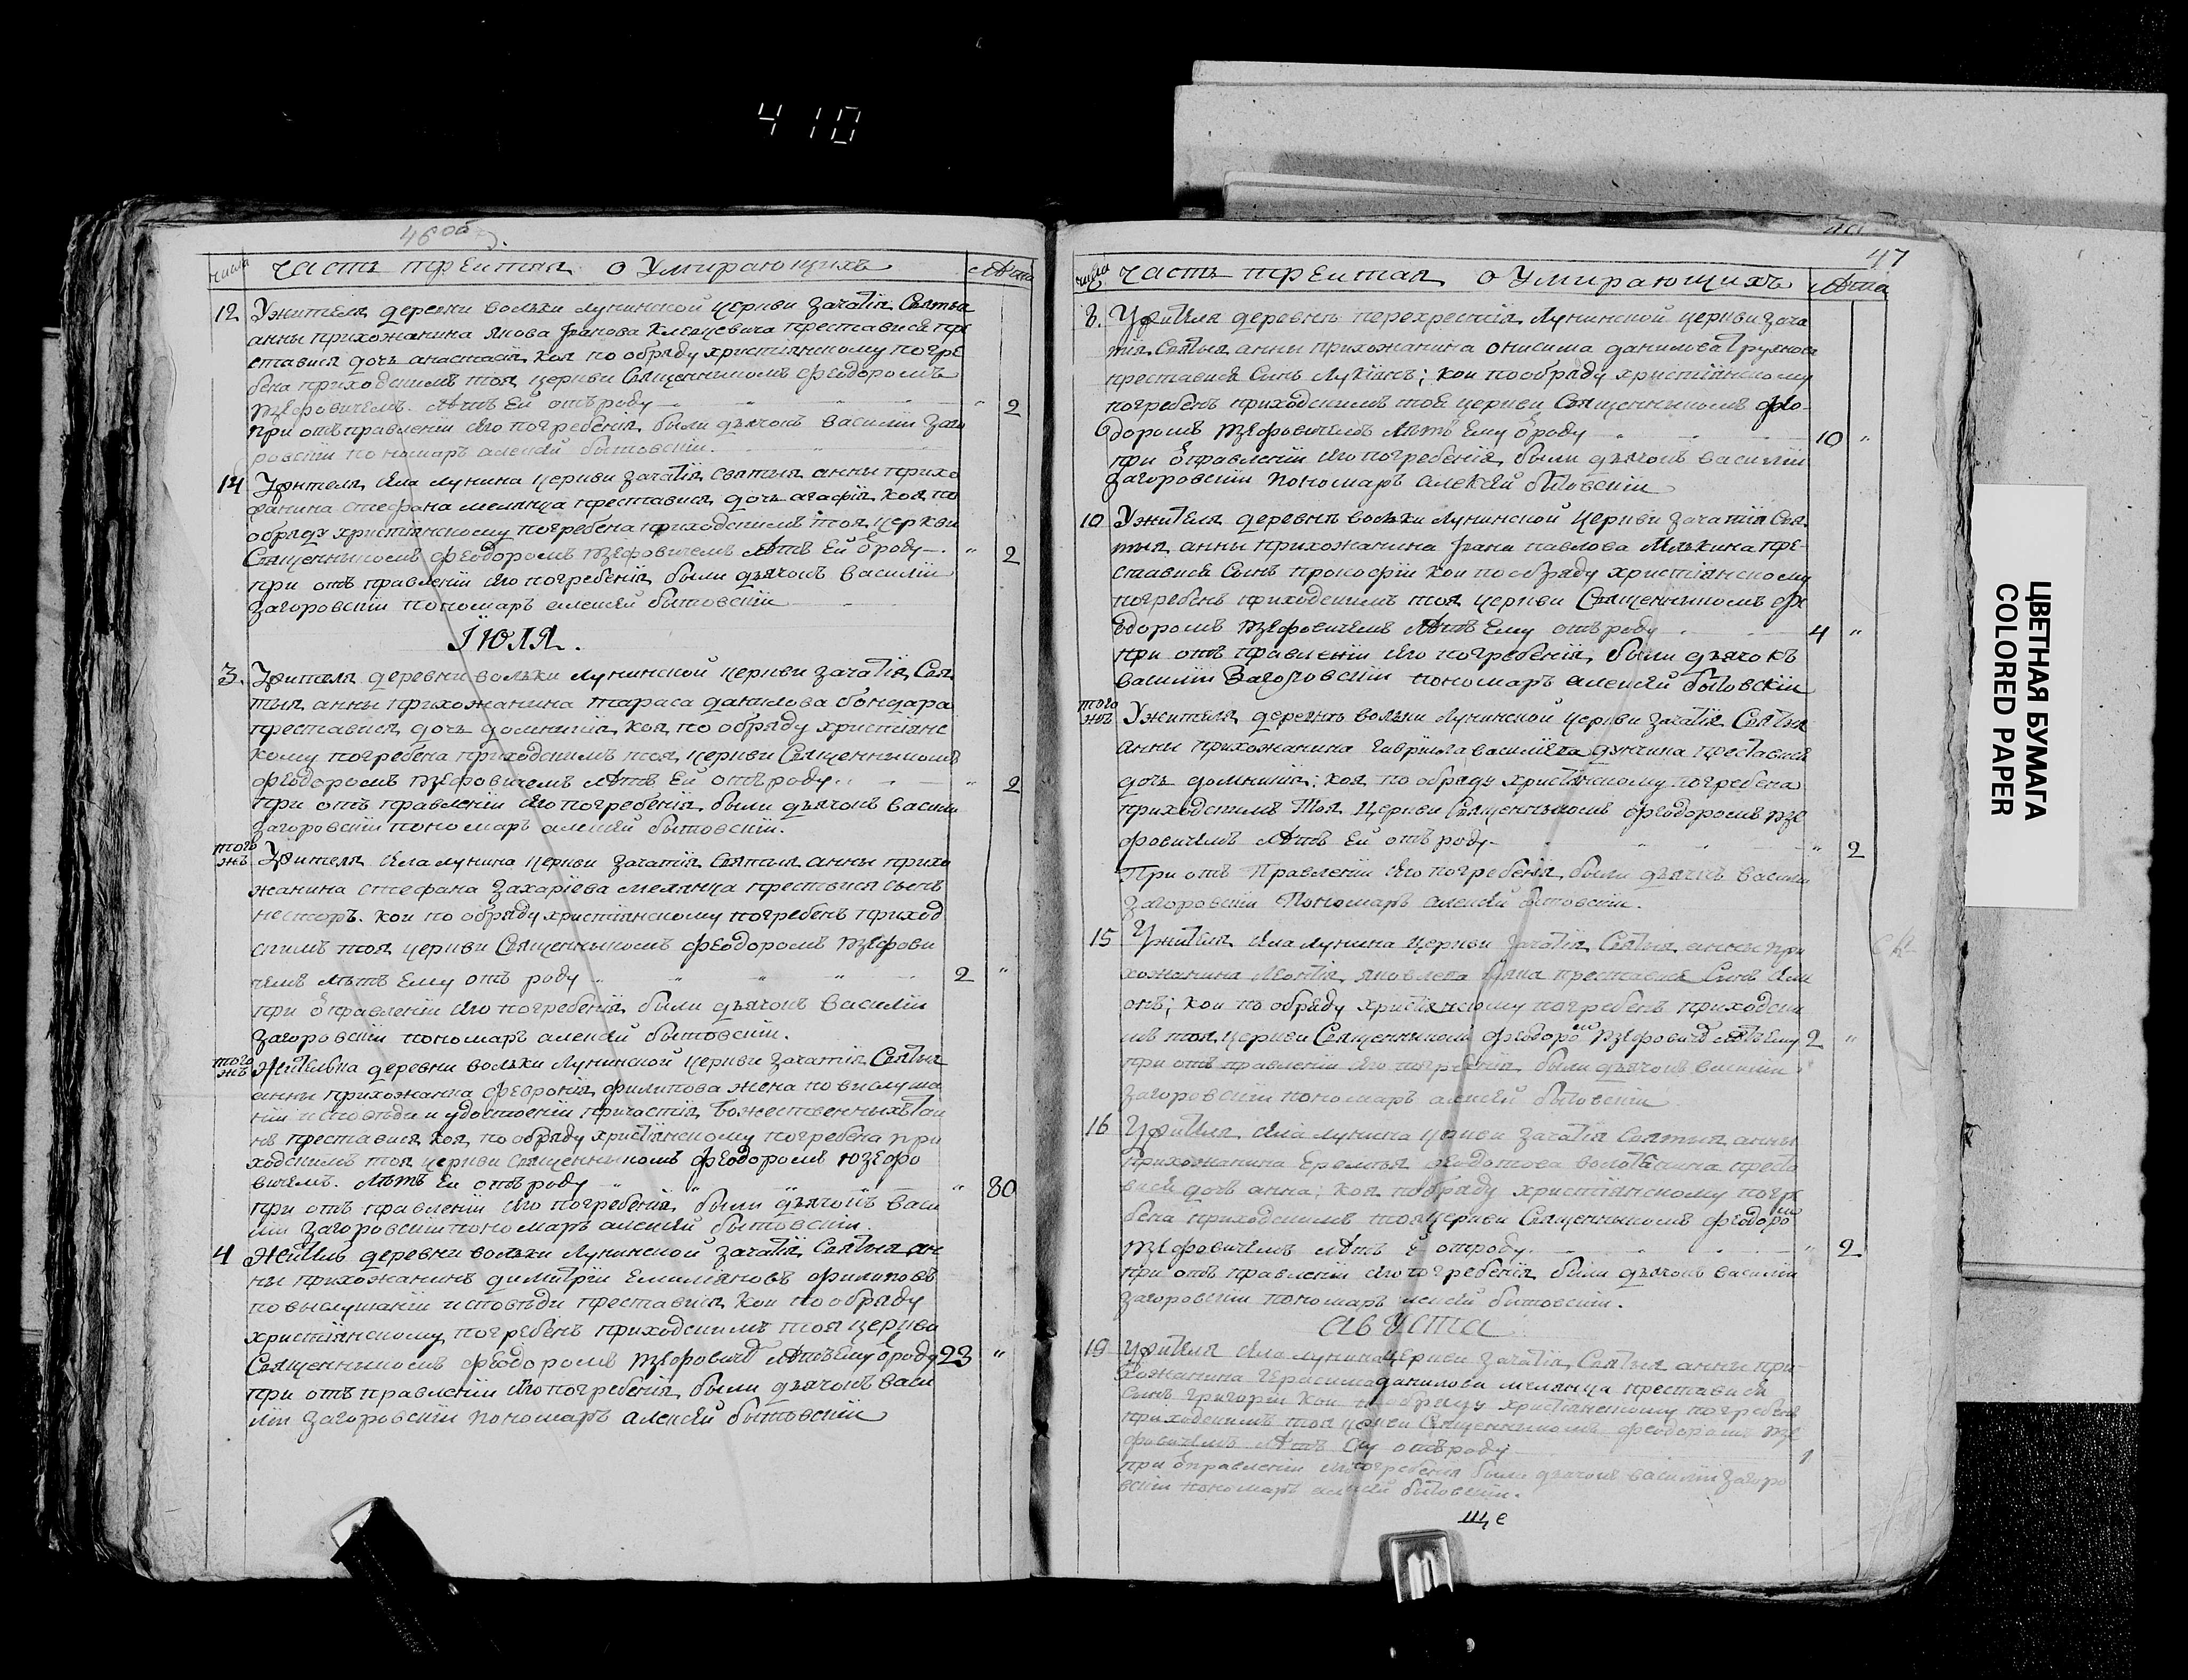 410
46 об
числа Часть третия о Умирающихъ Лѣта
12 Ужителя деревни вольки лунинской церкви зачатія Святыя
анны прихожанина якова Іванова преставися пре
ставися дочь анастасия коя по обряду христіянскому погре
бена приходскимъ тоя церкви Священникомъ феодоромъ
юзефовичемъ. Лѣтъ Ей отъ роду 2
при отъ правленіи его погребенія были дьячокъ василіи заго
ровскіи пономаръ алексѣй бытовскіи.
14 Ужителя села лунина церкви зачатія святыя анны прихо
жанина стефана мелянца преставися дочь агафія коя по
обряду христіянскому погребена приходскимъ тоя церкви
Священникомъ феодоромъ юзефовичемъ Лѣтъ Ей ѿроду 2
при отъ правленіи его погребенія были дьячокъ василіи
загоровскіи пономаръ алексѣй бытовскіи
Іюля.
3. Ужителя деревни вольки лунинской церкви зачатія Свя
тыя анны прихожанина тараса данилова бондара
преставися дочь домникія коя по обряду христіянс
кому погребена приходскимъ тоя церкви Священникомъ
феодоромъ юзефовичемъ Лѣтъ Ей отъ роду 2
при отъ правленіи его погребенія были дьячокъ василіи
загоровскіи пономаръ алексѣй бытовскіи.
того жъ Ужителя села лунина церкви зачатія Святыя анны прихо
жанина стефана захаріева мелянца преставися сынъ
несторъ. кои по обряду христіянскому погребенъ приход
скимъ тоя церкви Священникомъ феодоромъ юзефови
чемъ Лѣтъ Ему отъ роду 2
при ѿправленіи его погребенія были дьячокъ василіи
загоровскіи пономаръ алексѣй бытовскіи.
того жъ Жителька деревни вольки лунинской церкви зачатія Святыя
анны прихожанка февронія филипова жена по выслуша
ніи исповѣди и удостоеніи причастія божественныхъ таи
нъ преставися коя по обряду христіянскому погребена при
ходскимъ тоя церкви священникомъ феодоромъ юзефо
вичемъ. Лѣтъ Ей отъ роду 80
при отъ правленіи его погребенія были дьячокъ васи
ліи загоровскіи пономаръ алексѣй бытовскіи.
4 Житель деревни вольки лунинской зачатія Святыя ан
ны прихожанинъ димитріи Емиліяновъ филиповъ
по выслушаніи исповѣди преставися кои по обряду
христіянскому погребенъ приходскимъ тоя церкви
Священникомъ феодоромъ юзефовичемъ Лѣтъ Ему ѿроду 23
при отъ правленіи его погребенія были дьячокъ васи
ліи загоровскіи пономаръ алексѣй бытовскіи
47
числа Часть третия о Умирающихъ Лѣта
8. Ужителя деревни перехрестія лунинской церкви зача
тія Святыя анны прихожанина онисима данилова
преставися Сынъ лукіянъ; кои по обряду христіянскому
погребенъ приходскимъ тоя церкви Священникомъ фео
доромъ юзефовичемъ Лѣтъ Ему ѿроду 10
при ѿправленіи его погребенія были дьячокъ василіи
загоровскіи пономаръ алексѣй бытовскіи
10 Ужителя деревни вольки лунинской церкви зачатія Свя
тыя анны прихожанина Івана павлова пре
ставися Сынъ прокофіи кои по обряду христіянскому
погребенъ приходскимъ тоя церкви Священникомъ фе
одоромъ юзефовичемъ Лѣтъ Ему отъ роду 4
при отъ правленіи его погребенія были дьячокъ
василіи Загоровскіи пономаръ алексѣй бытовскіи
того жъ Ужителя деревни вольки лунинской церкви зачатія Святыя
анны прихожанина гавріила василіева преставися
дочь домникія; коя по обряду христіянскому погребена
приходскимъ тоя Церкви Священникомъ феодоромъ юзе
фовичемъ Лѣтъ Ей отъ роду 2
При отъ Правленіи его погребенія были дьячокъ василіи
загоровскіи Пономаръ алексѣй бытовскіи.
15 Ужителя села лунина церкви зачатія Святыя анны при
хожанина леонтія яковлева преставися Сынъ
онъ; кои по обряду христіянскому погребенъ приходски
мъ тоя церкви Священникомъ феодоромъ юзефовичемъ Лѣтъ Ему 2
при отъ правленіи его погребенія были дьячокъ василіи
загоровскіи пономаръ алексѣй бытовскіи
16 Ужителя села лунина церкви зачатія Святыя анны
прихожанина Еремѣя федотова преста
вися дочь анна; коя по обряду христіянскому погре
бена приходскимъ тоя церкви Священникомъ феодоромъ
юзефовичемъ Лѣтъ Ей отроду. 2
при отъ правленіи его погребенія были дьячокъ василіи
загоровскіи пономаръ алексѣй бытовскіи.
августа
19 Ужителя села лунина церкви зачатія Святыя анны при
хожанина герасима данилова мелянца преставися
сынъ григоріи кои по обряду христіянскому погребенъ
приходскимъ тоя церкви Священникомъ феодоромъ юзе
фовичемъ Лѣтъ Ему отъ роду 1
при ѿправленіи его погребенія были дьячокъ василіи загоро
вскіи пономаръ алексѣй бытовскіи.
ще
ЦВЕТНАЯ БУМАГА
COLORED PAPER